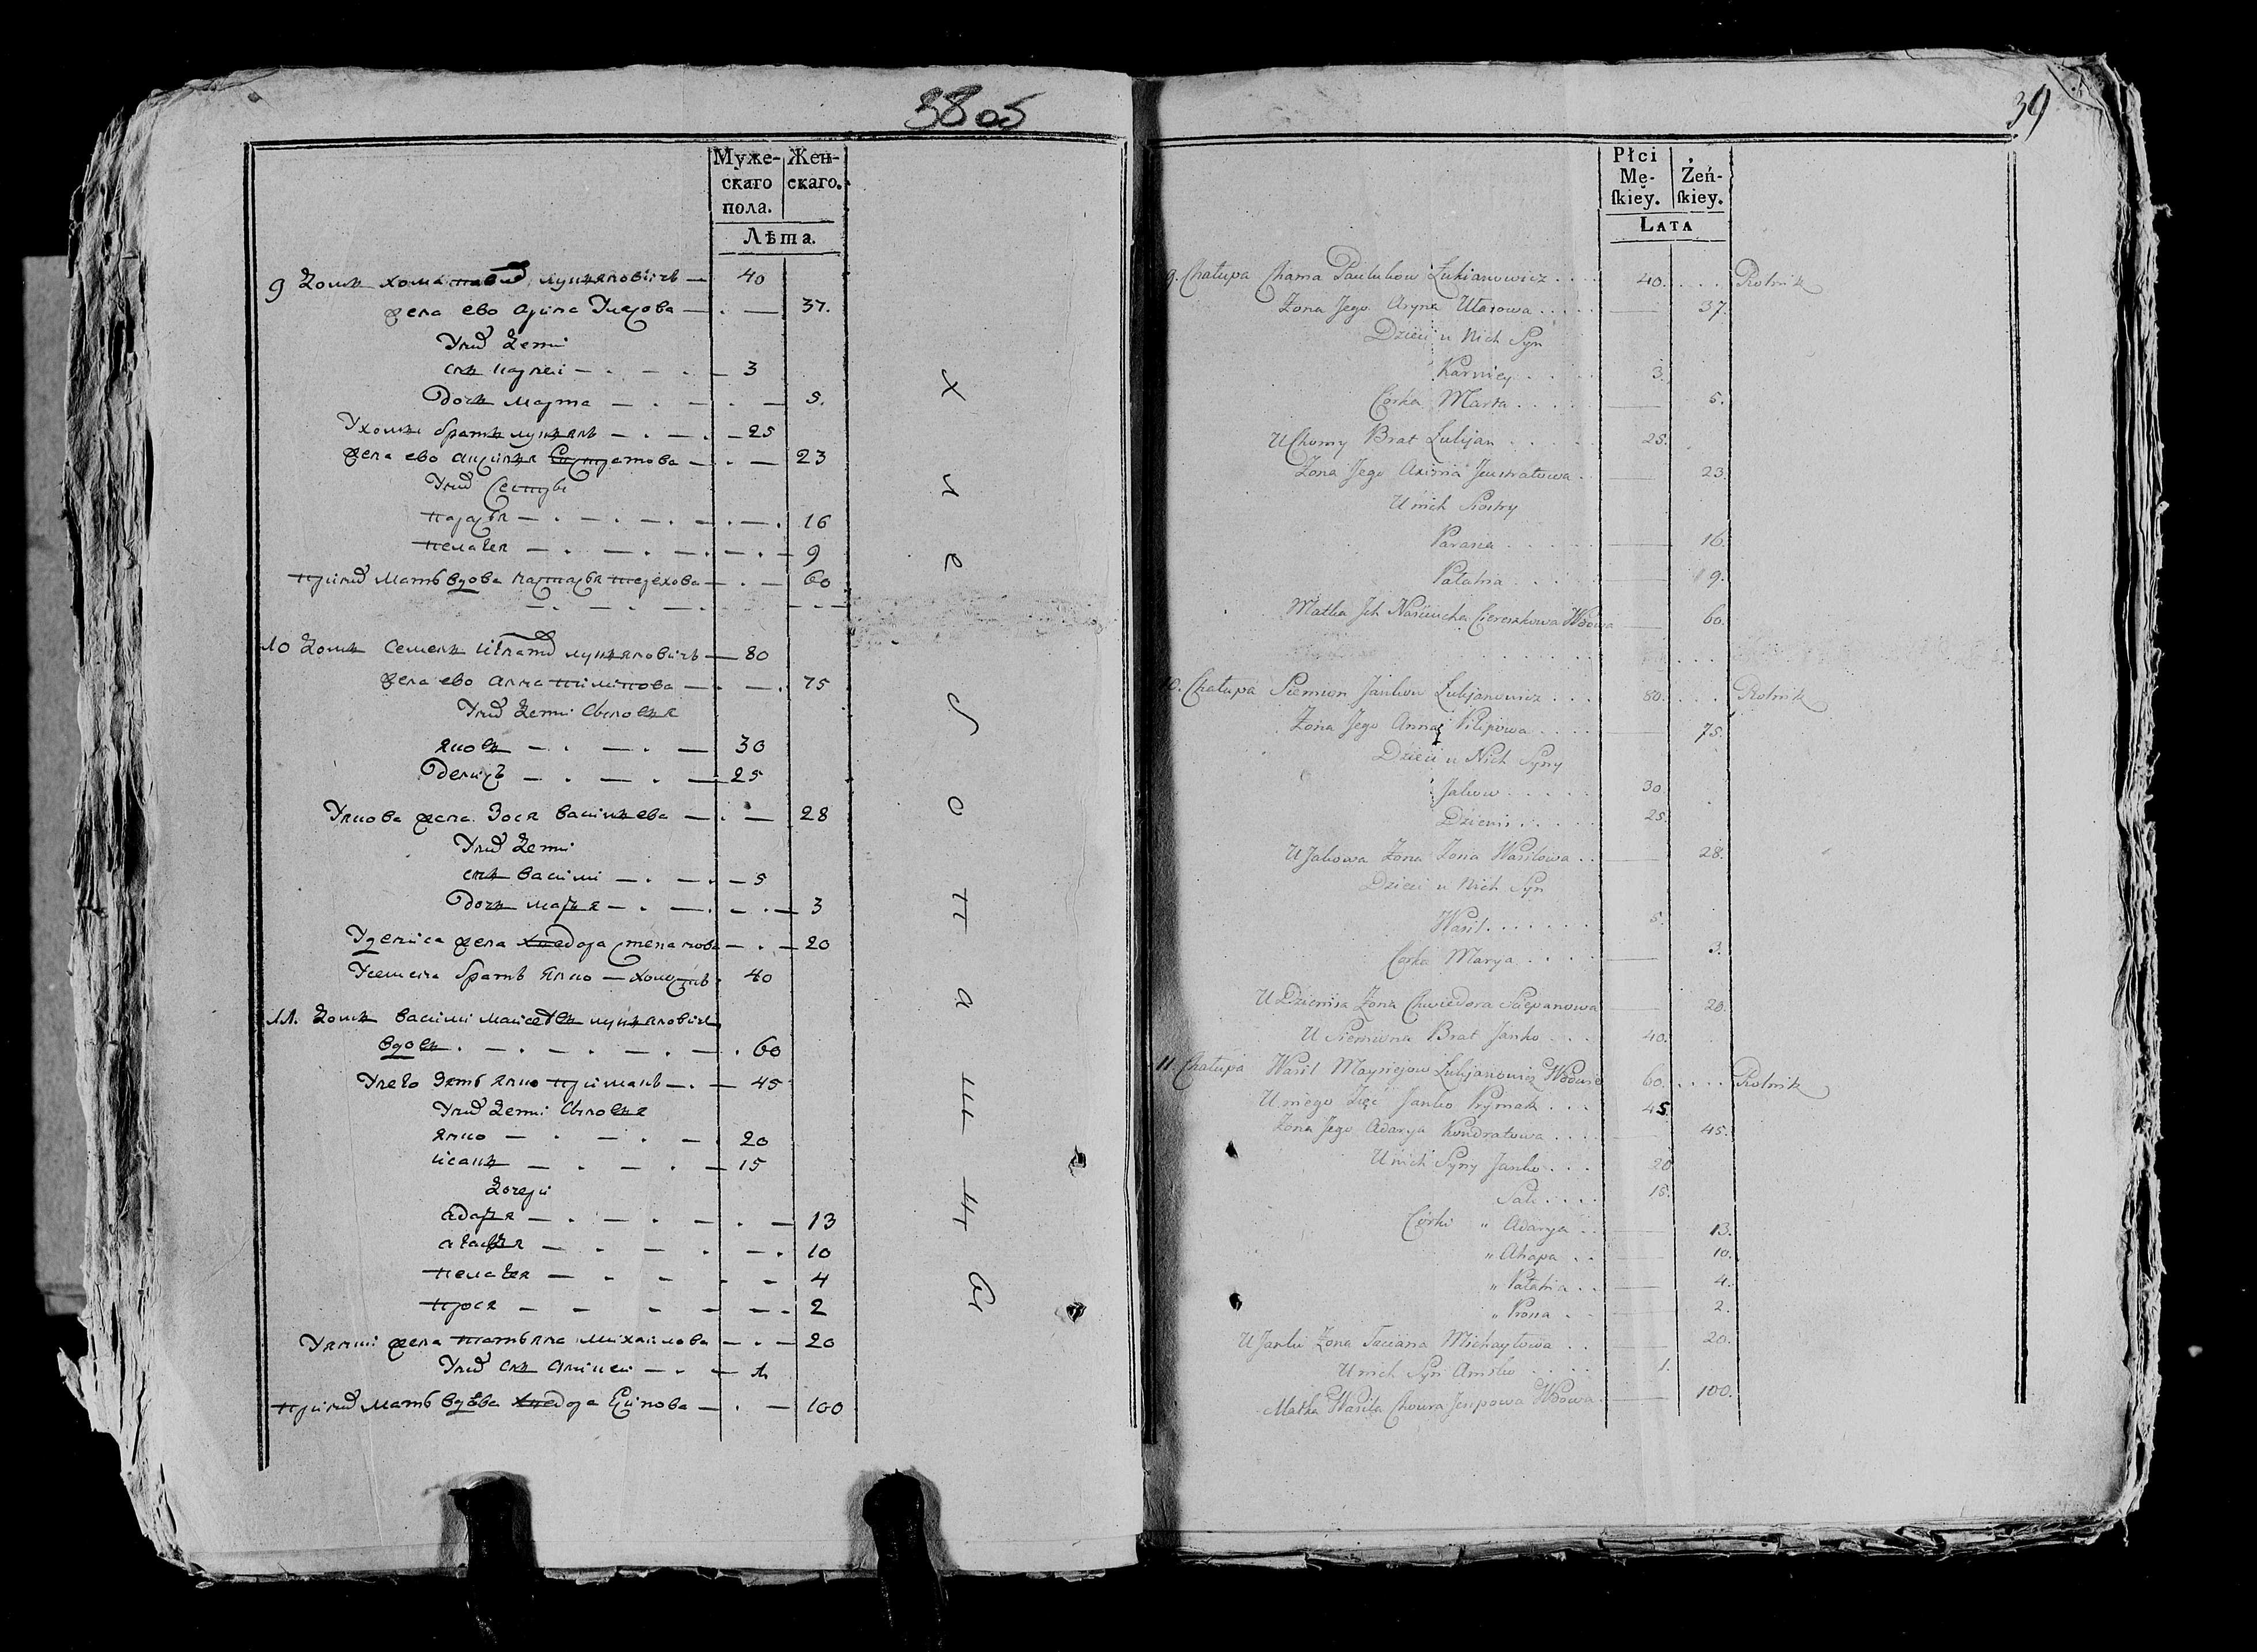 38 об
Муже-
скаго
пола.
Жен-
скаго.
Лѣта.
9 Домъ хома лукяновичъ — 40
жена ево арина — 37.
У них дети
снъ карней — 3
дочъ марта — 5.
У хомы братъ лукянъ — 25
жена ево — 23
У них сестры
парася — 16
пелагея — 9
при них мать вдова настася терехова — 60
10 Домъ семенъ лукяновичъ — 80
жена ево анна пилипова — 75
У них дети сыновя
яковъ — 30
денисъ — 25
У якова жена зося василева — 28
У них дети
снъ васили — 5
дочъ маря — 3
У дениса жена хведора степанова — 20
У семена братъ янко — 40
11. Домъ васили лукяновичъ
вдовъ — 60
У него зять янко примакъ — 45
У них дети сыновя
янко — 20
исакъ — 15
дочери
адаря — 13
агапя — 10
пелагея — 4
прося — 2
У янки жена татьяна михаилова — 20
У них снъ аникеи — 1
при них мать вдова хведора — 100
х
л
е
б
о
п
а
ш
ц
ы
39
Płci
Mę-
ſkiey.
Żeń-
ſkiey.
LATA
9. Chałupa Chama Pautukow Łukianowicz 40. Rolnik
Żona Jego Aryna Ułasowa 37.
Dzieci u Nich Syn
Karniey 3.
Corka Marta 5.
U Chomy Brat Łukjan 25.
Żona Jego Axinia Jeustratowa 23.
U nich Siostry
Parasia 16.
Pałahia 9.
Matka Ich Nasciucha Ciereszkowa Wdowa 60.
10. Chałupa Siemion Jankow Łukjanowicz 80. Rolnik
Żona Jego Anna Pilipowa 75.
Dzieci u Nich Syny
Jakow 30.
Dzienis 25.
U Jakowa Żona Zosia Wasilowa 28.
Dzieci u Nich Syn
Wasil 5.
Corka Marya 3.
U Dzienisa Żona Chwiedora Sciepanowa 20.
U Siemiona Brat Janko 40.
11. Chałupa Wasil Maysiejow Łukjanowicz Wdowiec 60. Rolnik
U niego Zięć Janko Prymak 45.
Żona Jego Adarya Kondratowa 45.
U nich Syny Janko 20
Sak 15.
Córki " Adarya 13.
" Ahapa 10.
" Pałahia 4.
" Prosia 2.
U Janki Żona Taciana Michayłowa 20.
U nich Syn 1.
Matka Wasila Jesipowa Wdowa 100.